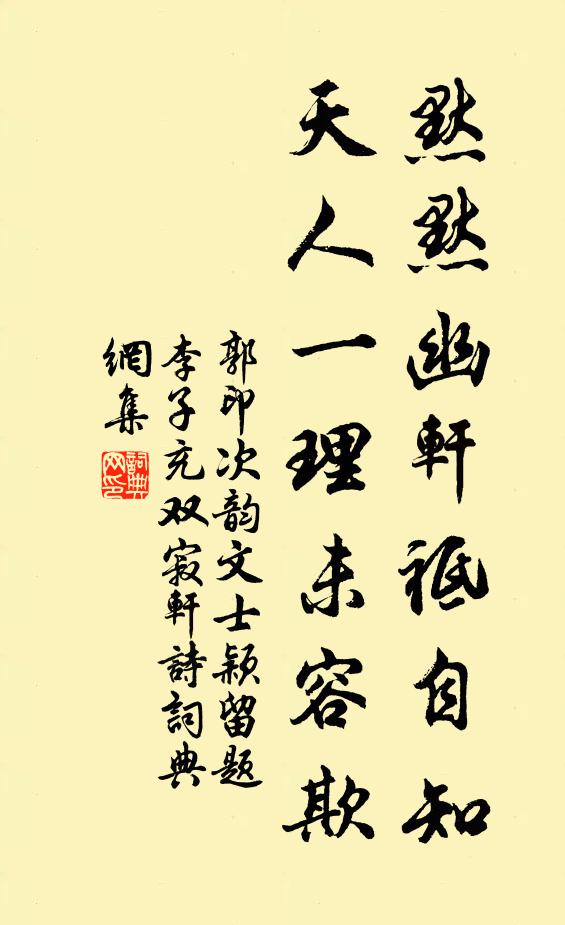 默默幽軒祗自知
天人一理未容欺
郭印次韵文士颖留题
李子充双寂軒詩詞典
網集
詞典
网印